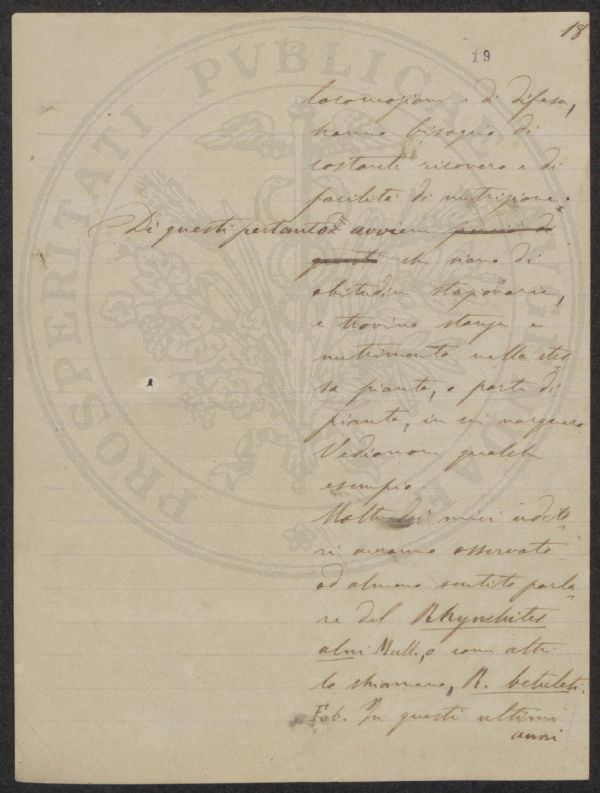 18
19
locomozione e di difesa,
hanno bisogno di
costante ricovero e di
facilità di nutrizione.
Di questi pertanto avviene perciò di
questi che siano di
abitudini stazionarie,
e trovino stanza e
nutrimento nella stes
sa pianta, o parte di
pianta, in cui nacquero
Vediamone qualche
esempio.
Molti dei miei udito
ri avranno osservato
od almeno sentito parla
re del Rhynchites
alni Mull., o come altri
lo chiamano, R. betuleti.
Fab. In questi ultimi
anni
PROSPERITATI PVBLICAE